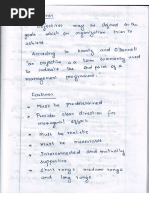 Objectives may be defined as the
goals which an organisation tries to
achieve
According to Koontz and O'Donnell
"an objective is a term commonly used
to indicate the end point of a
management programme.
Features
• Must be predetermined
• Provide clear direction for
managerial effort
• Must be realistic
• Must be measurable
• Interconnected and mutually
supportive
• Short range, medium range
and long range